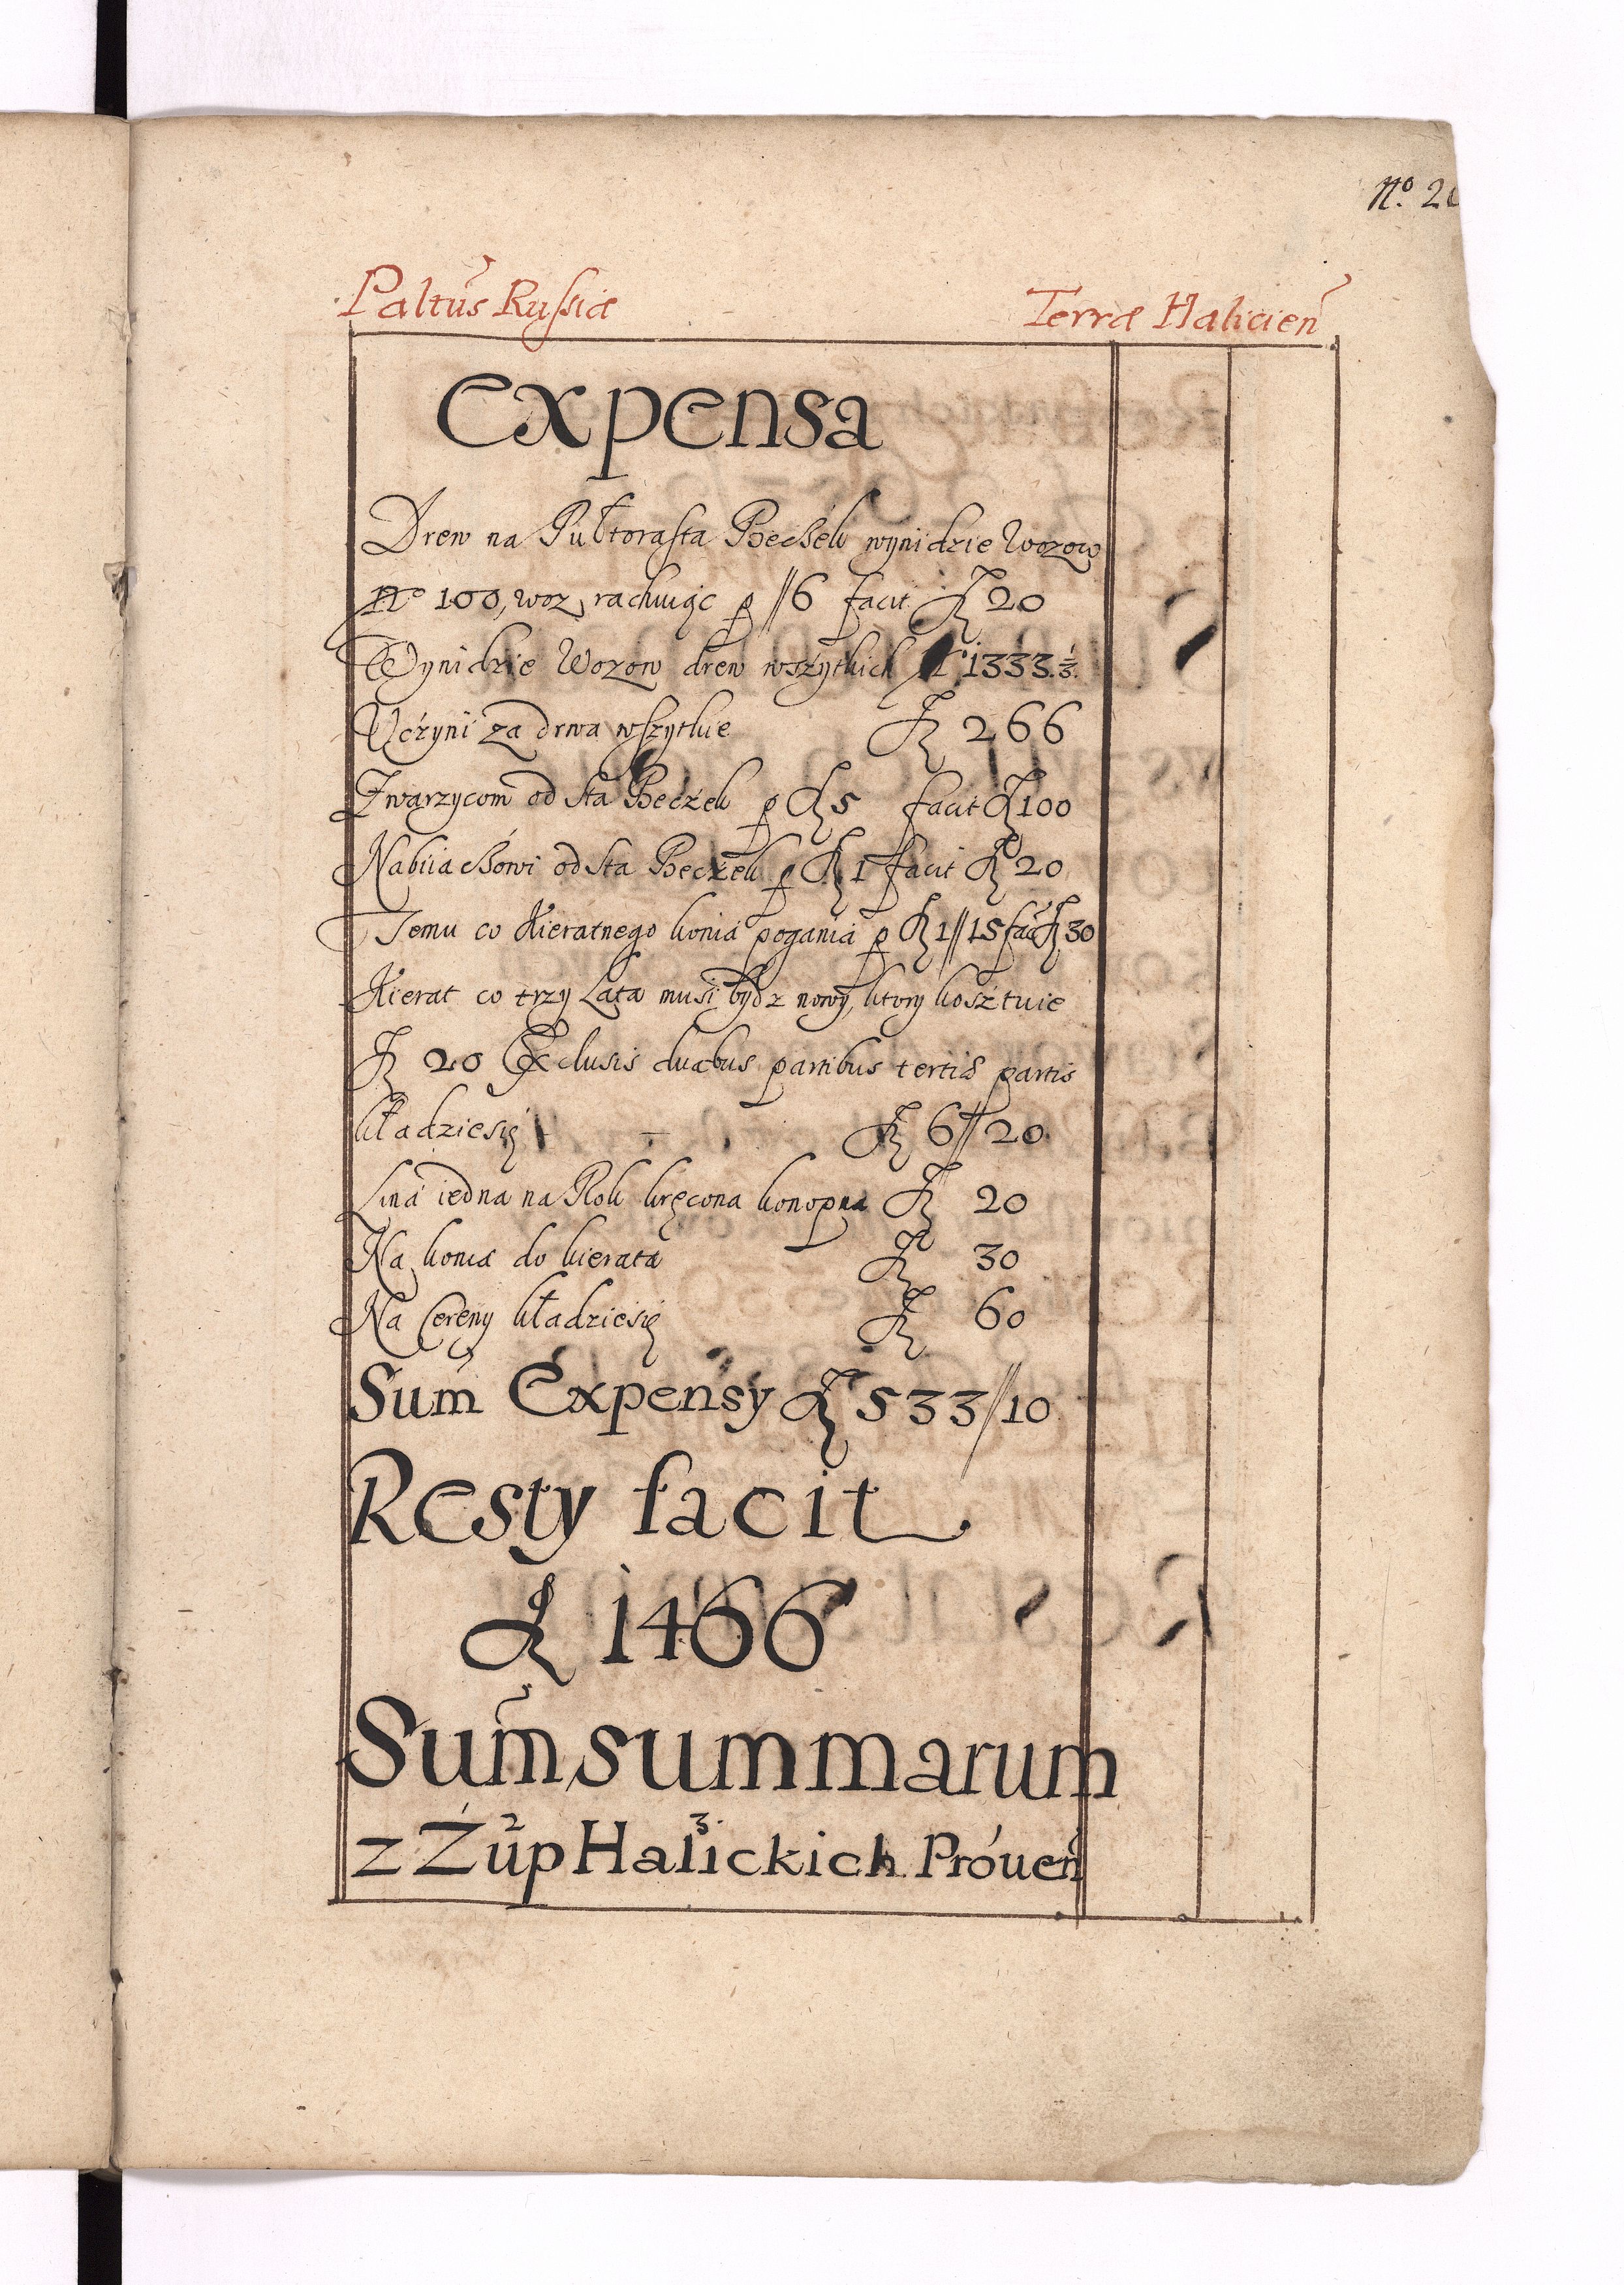 Nº. 20
Paltũs Russiæ Terræ Haliciẽn
Expensa
Drew na Pułtorasta Beczek wynidzie Wozow
Nº 100, woz rachuiąc p //6 facit fl 20
Wynidzie Wozow drew wszytkich Nº 1333.⅓.
Uczyni za drwa wszytkie fl 266
Zwarzycom od sta Beczek p fl 5 facit fl 100
Nabiiaczowi od sta Beczek p fl 1 facit fl 20
Temu co Kieratnego konia pogania p fl 1//15 fac fl 30
Kierat co trzy Lata musi bydz nowy, ktory kosztuie
fl 20 Exclusis duabus partibus tertia partis
kładziesię fl 6//20
Lina iedna na Rok kręcona konopna fl 20
Na konia do kierata fl 30
Na Cereny kładziesię fl 60
Sum̃ Expensy fl 533//10
Resty facit
fl 1466
Sum̃ summarum
z Żup Halickich Prouen̄